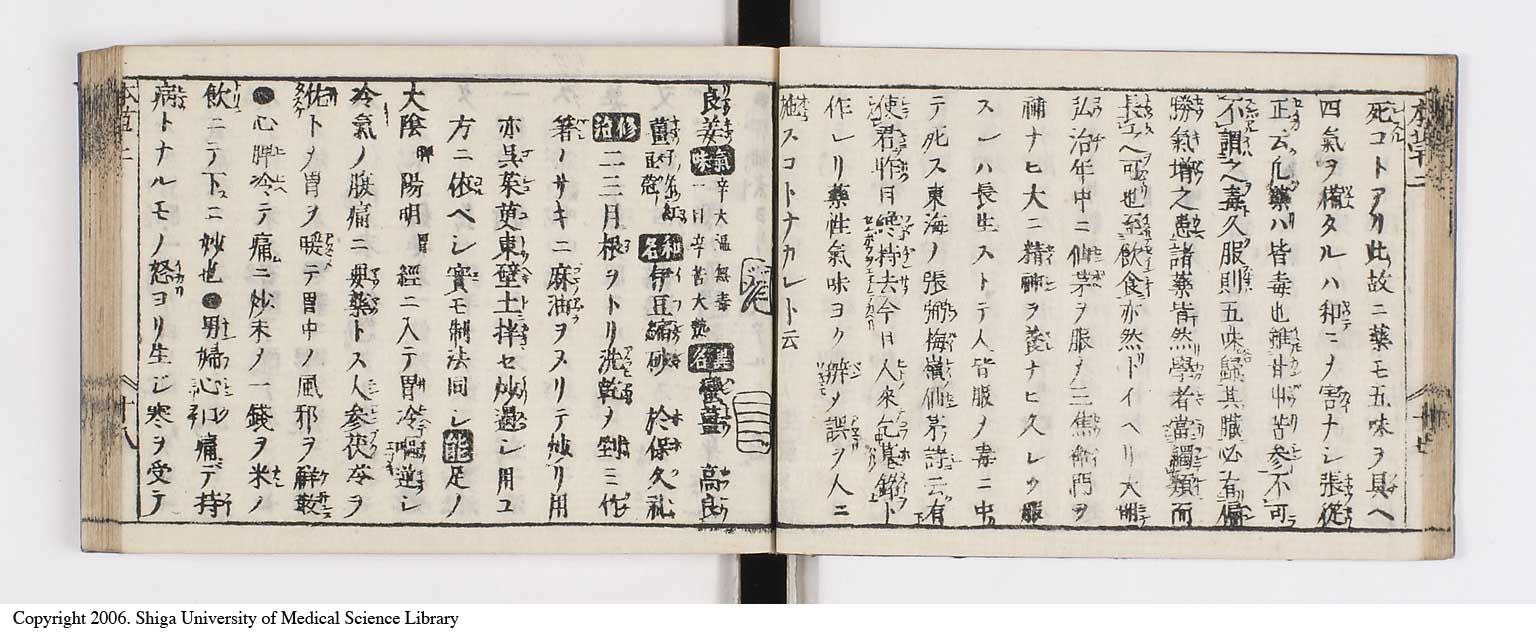 死コトアリ此故ニ藥モ五味ヲ具ヘ
四氣ヲ備タルハ却テノ害ナシ張從
正云凡藥ハ皆毒也雖甘中苦參不可
不謂之毒久服則五味歸其臟必有偏
勝氣增之患諸藥皆然學者當觸類而
長之ヘ可也至飲食亦然トイヘリ大明
弘治年中ニ仙茅ヲ服メ三焦命門ヲ
補ナヒ大ニ精神ヲ養ナヒ久レク服
スレハ長生ストテ人皆服メ毒ニ中
テ死ス東海ノ張弼梅嶺仙茅詩云有
使君昨日纔持去今日人來乞墓銘ト
作レリ藥性氣味ヨク辨メ誤ヲ人ニ
施スコトナカレト云
良姜 氣味 辛大温無毒 一曰辛苦大熱 異名 蠻薑 高良
薑 和名 伊豆縮砂 於保久礼
修治 二三月根ヲトリ洗乾メ剉ミ作
ノサキニ麻油ヲヌリテ炒リ用
亦呉茱萸東壁土拌セ炒過シ用ユ
方ニ依ヘシ實モ制法同シ 能 足ノ
大陰脾陽明胃經ニ入テ胃冷嘔逆シ
冷氣ノ腹痛ニ要藥トス人參茯苓ヲ
佐トメ胃ヲ暖テ胃中ノ風邪ヲ解散ス
●心脾冷テ痛ニ炒末メ一錢ヲ米ノ
飲ニテ下ニ妙也●男婦心口痛テ持
病トナルモノ怒ヨリ生ジ寒ヲ受テ
十八
Copyright 2006. Shiga University of Medical Science Library